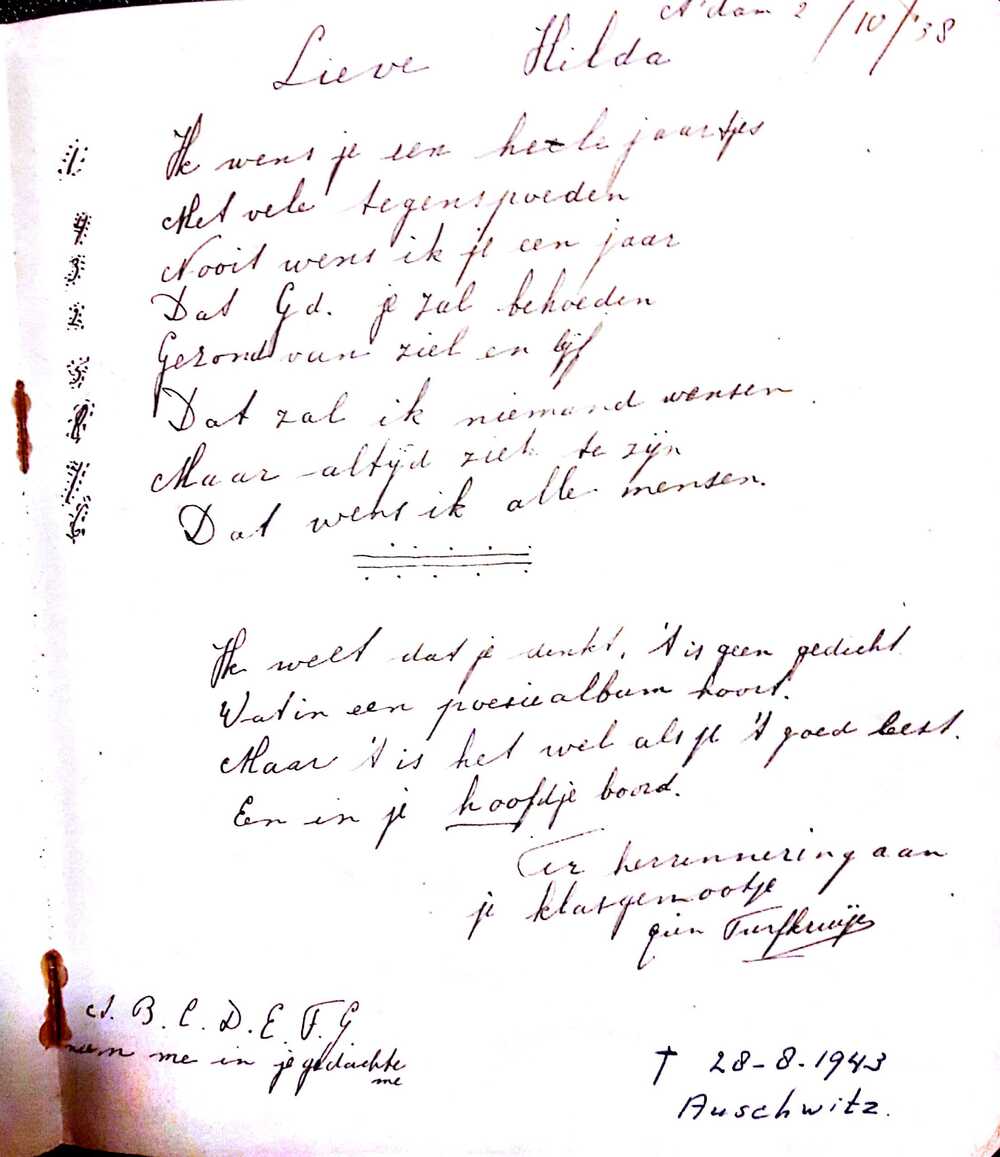 A'dam 2/10/'38
Lieve Hilda
1. Ik wens je een heele jaartjes
4. Met vele tegenspoeden
3. Nooit wens ik je een jaar
2. Dat Gd. je zal behoeden
5. Gezond van ziel en lijf
8. Dat zal ik niemand wensen
7. Maar altijd ziek te zijn
6. Dat wens ik alle mensen.
Ik weet dat je denkt, 't is geen gedicht
Wat in een poesiealbum hoort.
Maar 't is het wel als je 't goed leest.
En in je hoofdje boord.
Ter herrennering aan
je klasgenootje
Turfkruijer
A. B. C. D. E. F. G
neem me in je gedachte
me
† 28-8-1943
Auschwitz.